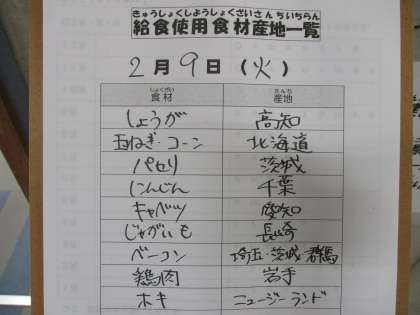 きゅうしょくしようしょくざいさんちいちらん
給食使用食材産地一覧
2月9日(火)
しょくざい さんち
食材 産地
しょうが 高知
玉ねぎ・コーン 北海道
パセリ 茨城
にんじん 千葉
キャベツ 愛知
じゃがいも 長崎
ベーコン 埼玉・茨城・群馬
鶏肉 岩手
ホキ ニュージーランド